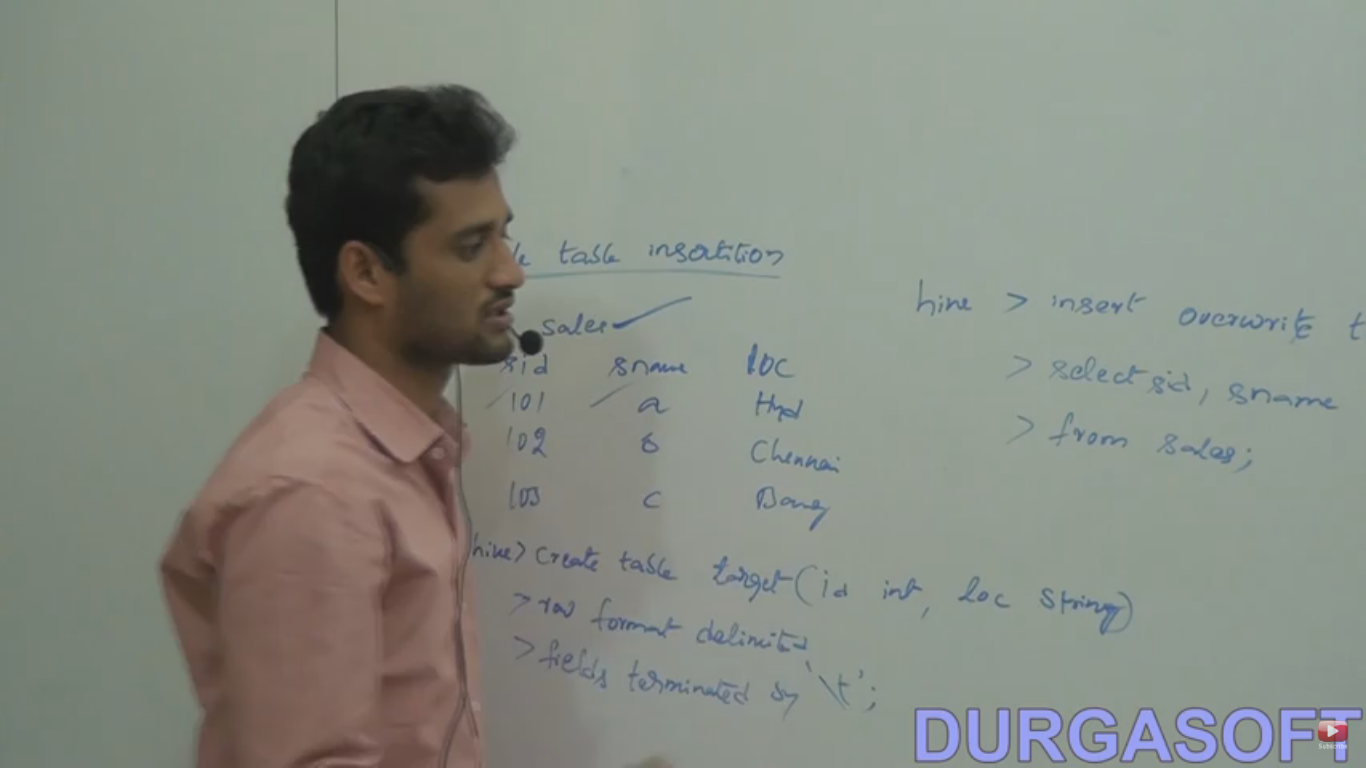 table insertition
sales
sid sname loc
101 a Hyd
102 b Chennai
103 c Bang
hive> create table target(id int, loc string)
> row format delimited
> fields terminated by '\t';
hive > insert overwrite t
> select sid, sname
> from sales;
DURGASOFT
Subscribe